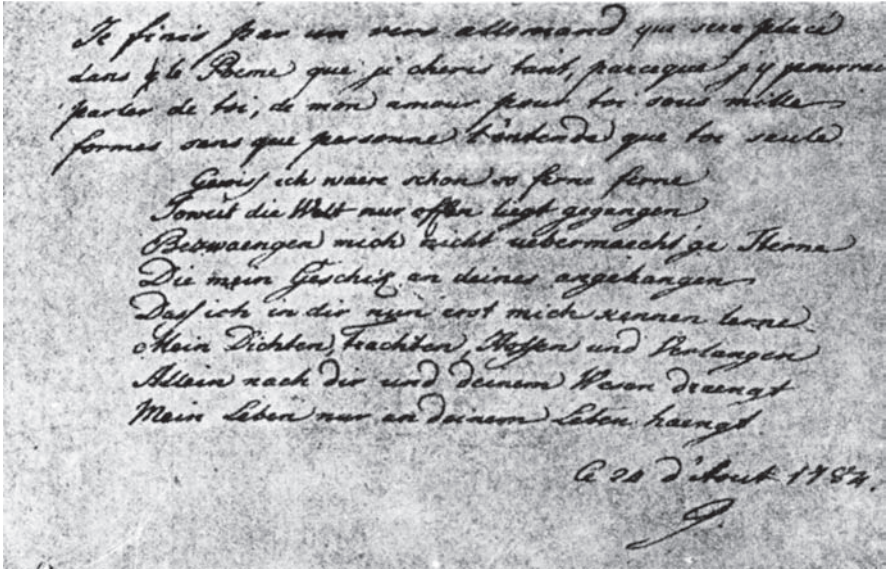 Je finis par un vers allemand qui sera placé
dans le Poeme que je cheris tant, parceque j'y pourrai
parler de toi, de mon amour pour toi sous mille
formes sans que personne l'entende que toi seule.
Gewiss ich waere schon so ferne ferne
Soweit die Welt nur offen liegt gegangen
Bezwaengen mich nicht uebermaecht'ge Sterne
Die mein Geschick an deines angehangen
Dass ich in dir nun erst mich kennen lerne
Mein Dichten, Trachten, Hoffen und Verlangen
Allein nach dir und deinem Wesen draengt
Mein Leben nur an deinem Leben haengt.
Ce 24 d'Aout 1784.
G.